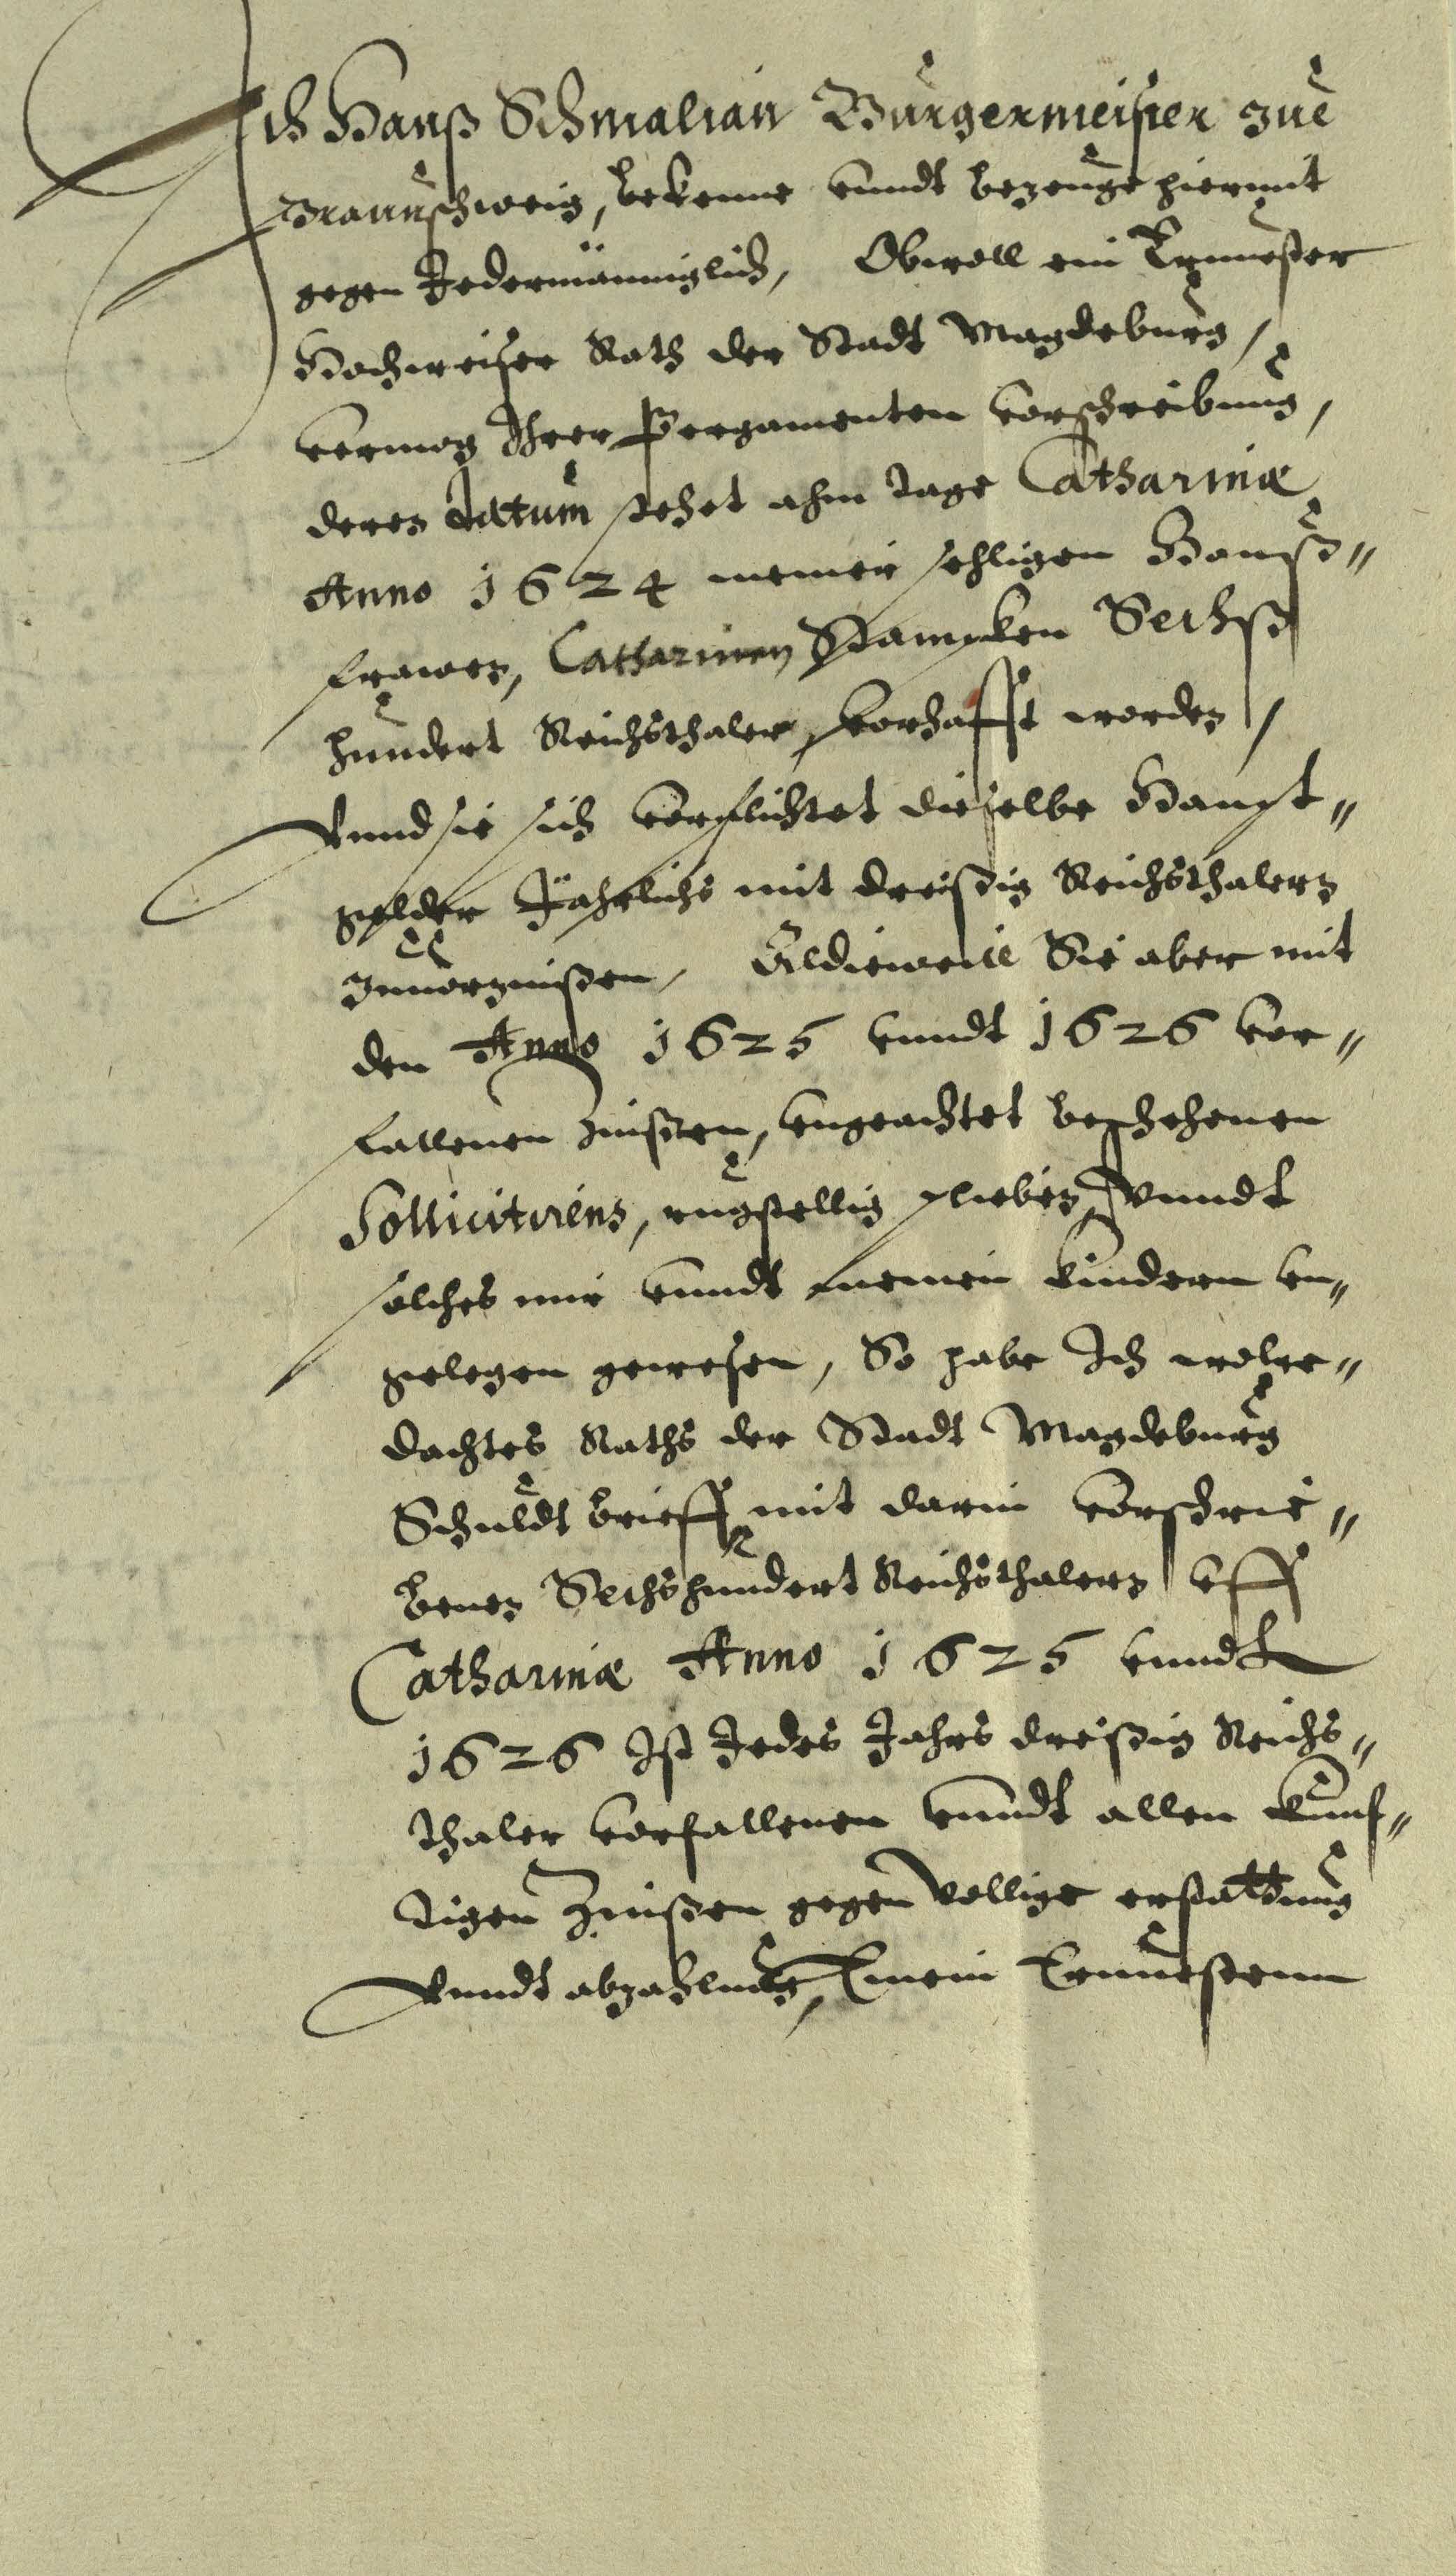 Ich Hanß Schmalian Bürgermeister zue
Braunschweig, bekenne vundt bezeuge hiermit
gegen Jedermänniglich, Obwoll ein Ernuester
Hochweiser Rath der Stadt Magdeburg,
vermog Ihrer Pergamenten vorschreibung,
deren datum stehet ahm tage Catharinæ
Anno 1624 meiner sehligen Hauß-
frawen, Catharinen Stampken Sechß
hundert Reichsthaler, vorhafft worden,
Vnnd sie sich verpflichtet dieselbe Haupt-
gelder Jährlichs mit dreißig Reichsthalern
zuuorzinßen, Aldieweill Sie aber mit
den Anno 1625 vundt 1626 vor-
fallenen Zinßen, vngeachtet beschehenen
Sollicitirens, rugstellig plieben, Vnndt
solches mir vundt meinen Kindern vn-
gelegen gewesen, So habe Ich wolge-
dachtes Raths der Stadt Magdeburg
Schuldt brieff mit darin vorschrie-
benen Sechshundert Reichsthalern vff
Catharinæ Anno 1625 vundt
1626 Ist Jedes Jahrs dreißig Reichs-
thaler vorfallenen vundt allen Künf-
tigen Zinßen gegen Vollige erstattung
Vnndt abzahlung, Einem Ernuestenn